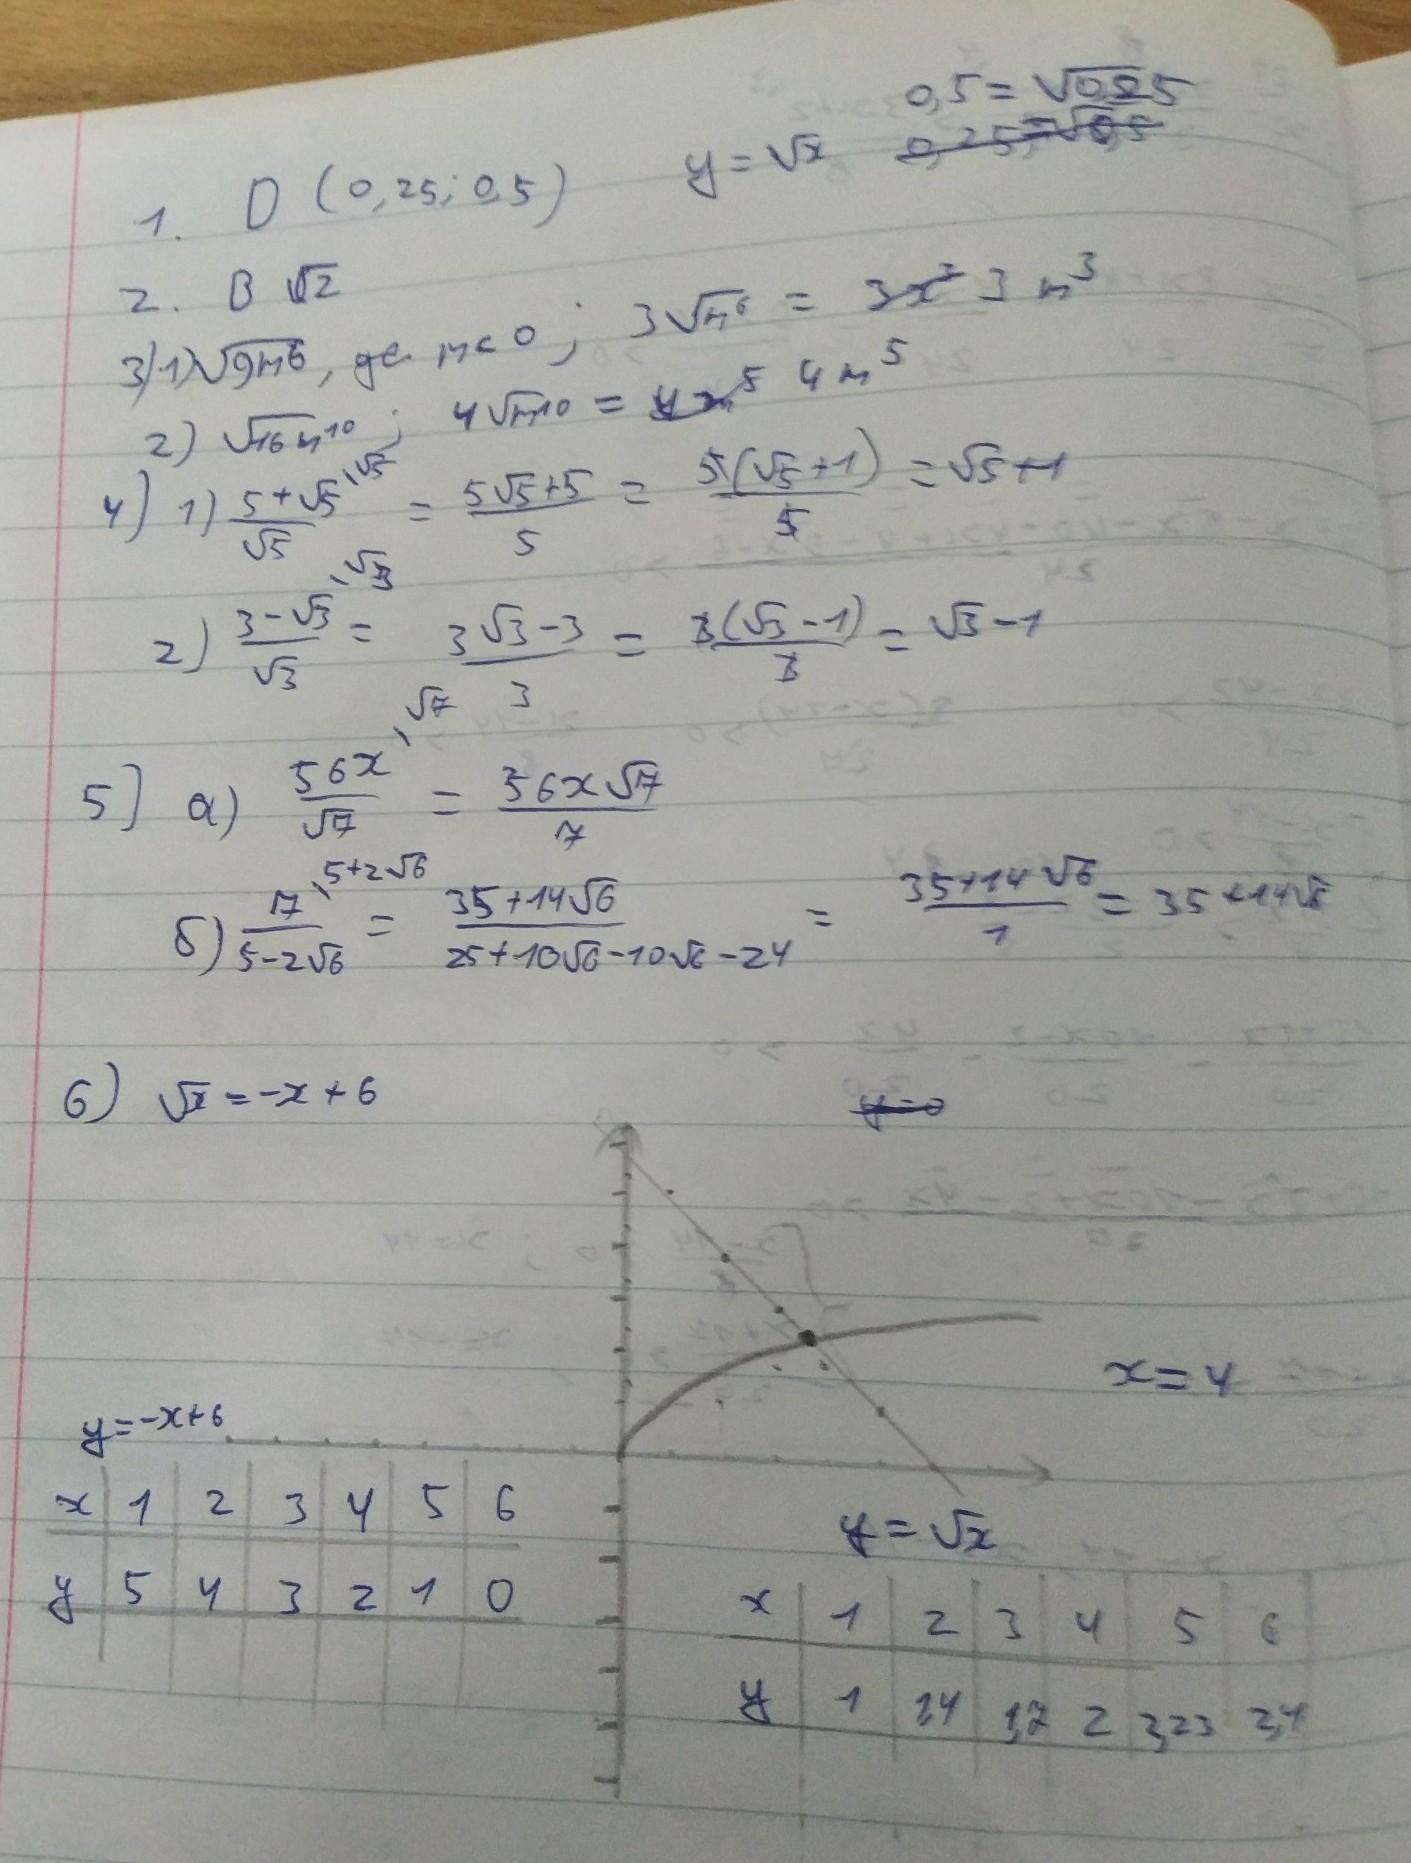 0,5 = √0,25
1. D (0,25; 0,5) y = √x 0,25 = √0,5
2. B √2
3) 1) √9m⁶, де m < 0; 3√m⁶ = 3x³ 3m³
2) √16m¹⁰; 4√m¹⁰ = 4m⁵ 4m⁵
4) 1) (5+√5)/√5 \√5 = (5√5+5)/5 = 5(√5+1)/5 = √5+1
2) (3-√3)/√3 \√3 = (3√3-3)/3 = 3(√3-1)/3 = √3-1
5) а) 56x/√7 \√7 = 56x√7/7
б) 7/(5-2√6) \5+2√6 = (35+14√6)/(25+10√6-10√6-24) = (35+14√6)/1 = 35+14√6
6) √x = -x+6 y=0
x = 4
y = -x+6
x 1 2 3 4 5 6
y 5 4 3 2 1 0
y = √x
x 1 2 3 4 5 6
y 1 1,4 1,7 2 2,23 2,4